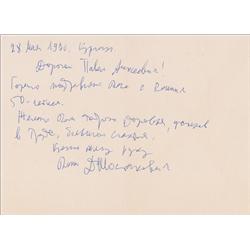 28 мая 1970. Курган
Дорогой Павел Алексеевич!
Горячо поздравляю Вас с Вашим
50-летием.
Желаю Вам доброго здоровья, успехов
в труде, большого счастья.
Крепко жму руку
Ваш Д. Шостакович